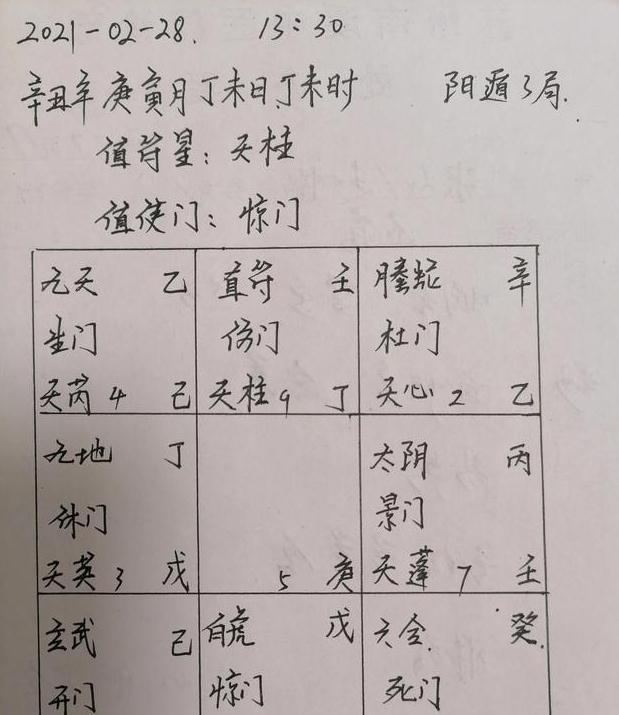 2021-02-28. 13:30
辛丑年 庚寅月 丁未日 丁未时 阳遁3局.
值符星: 天柱
值使门: 惊门
九天 乙 直符 壬 螣蛇 辛
生门 伤门 杜门
天芮 4 己 天柱 9 丁 天心 2 乙
九地 丁 太阴 丙
休门 景门
天英 3 戊 5 庚 天蓬 7 壬
玄武 己 白虎 戊 六合. 癸.
开门 惊门 死门